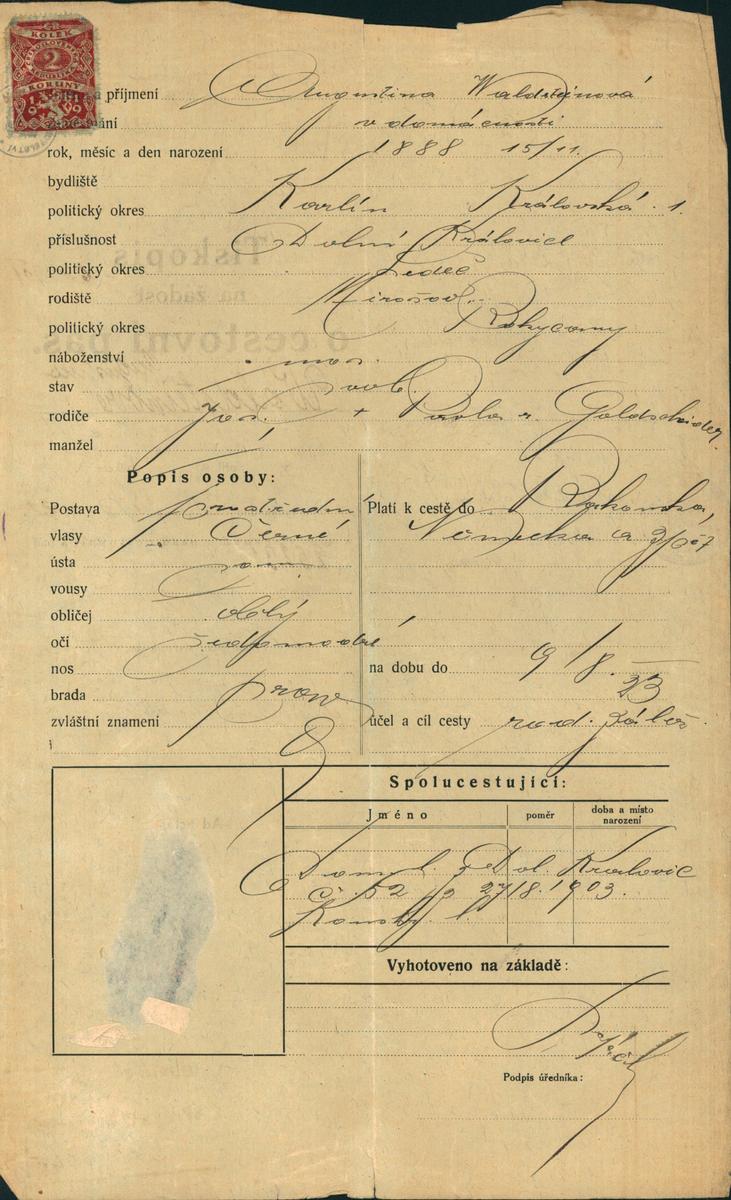 KOLEK
2
KORUNY
příjmení Augustina Waldsteinová
v domácnosti
rok, měsíc a den narození 1888 15/11.
bydliště
politický okres Karlín Královská 1.
příslušnost Dolní Královice
politický okres Ledeč
rodiště Mirošov
politický okres Rokycany
náboženství mos.
stav svob.
rodiče Jos. + Pavla r. Goldscheider
manžel
Popis osoby:
Postava prostřední
vlasy černé
ústa
vousy
obličej oblý
oči šedomodré
nos
brada prav
zvláštní znamení
Platí k cestě do Rakouska,
Německa a zpět
na dobu do 9/8. 23
účel a cíl cesty rod. zálež.
Spolucestující:
Jméno poměr doba a místo narození
Domovsk. z Dol. Kralovic
č. 52 z 27/8. 1903.
Vyhotoveno na základě:
Podpis úředníka: